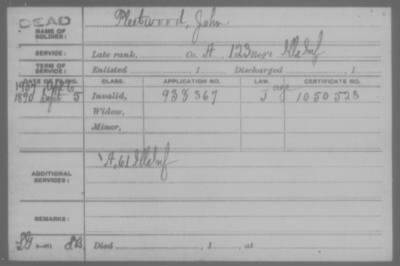 DEAD
NAME OF SOLDIER: Fleetwood, John
SERVICE: Late rank, Co. A, 123 Reg't Ills Inf
TERM OF SERVICE: Enlisted , 1 Discharged , 1
DATE OF FILING. CLASS. APPLICATION NO. LAW. CERTIFICATE NO.
1907 age
1890 Sept 5 Invalid, 938367 J 1050523
Widow,
Minor,
ADDITIONAL SERVICES: A, 61 Ills Inf
REMARKS:
Died , 1 , at